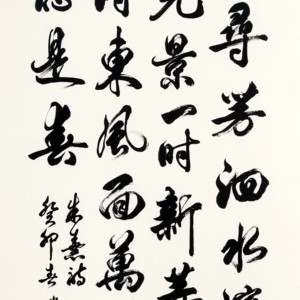 尋芳泗水濱
光景一时新等
得東風面萬
總是春
朱熹詩
癸卯春